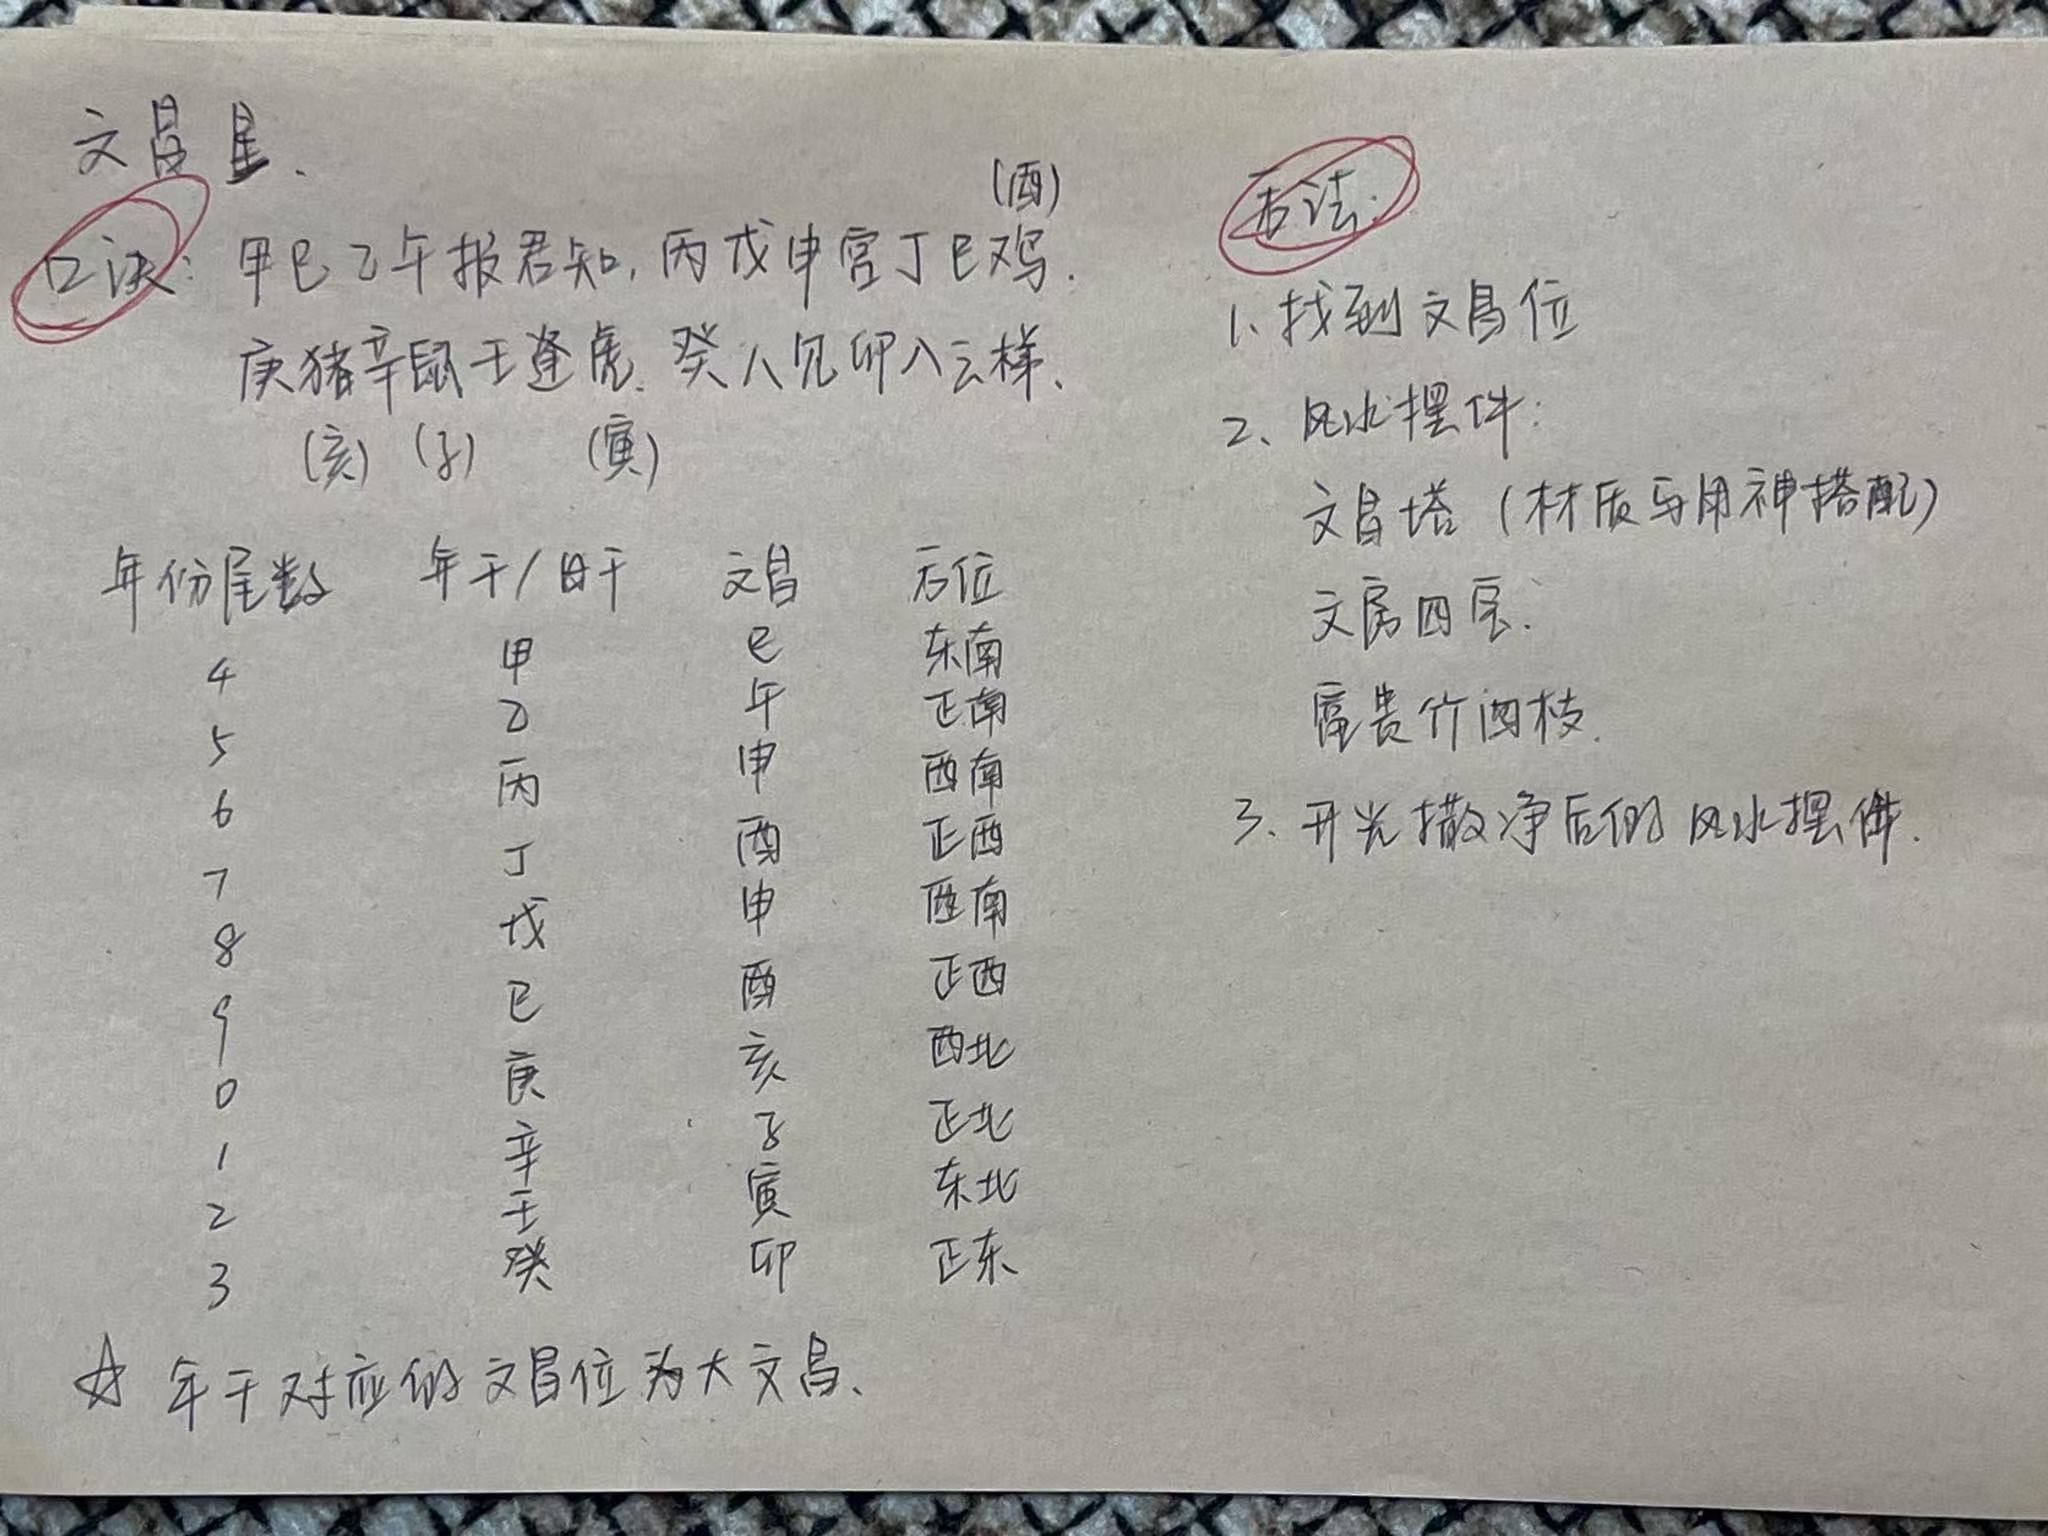 文昌星.
(酉)
口诀: 甲巳乙午报君知, 丙戊申宫丁己鸡.
庚猪辛鼠壬逢虎. 癸人见卯入云梯、
(亥) (子) (寅)
年份尾数 年干/日干 文昌 方位
4 甲 巳 东南
5 乙 午 正南
6 丙 申 西南
7 丁 酉 正西
8 戊 申 西南
9 己 酉 正西
0 庚 亥 西北
1 辛 子 正北
2 壬 寅 东北
3 癸 卯 正东
☆ 年干对应的文昌位为大文昌、
方法:
1、找到文昌位
2、风水摆件:
文昌塔 (材质与用神搭配)
文房四宝.
富贵竹四枝.
3、开光撒净后的风水摆件.